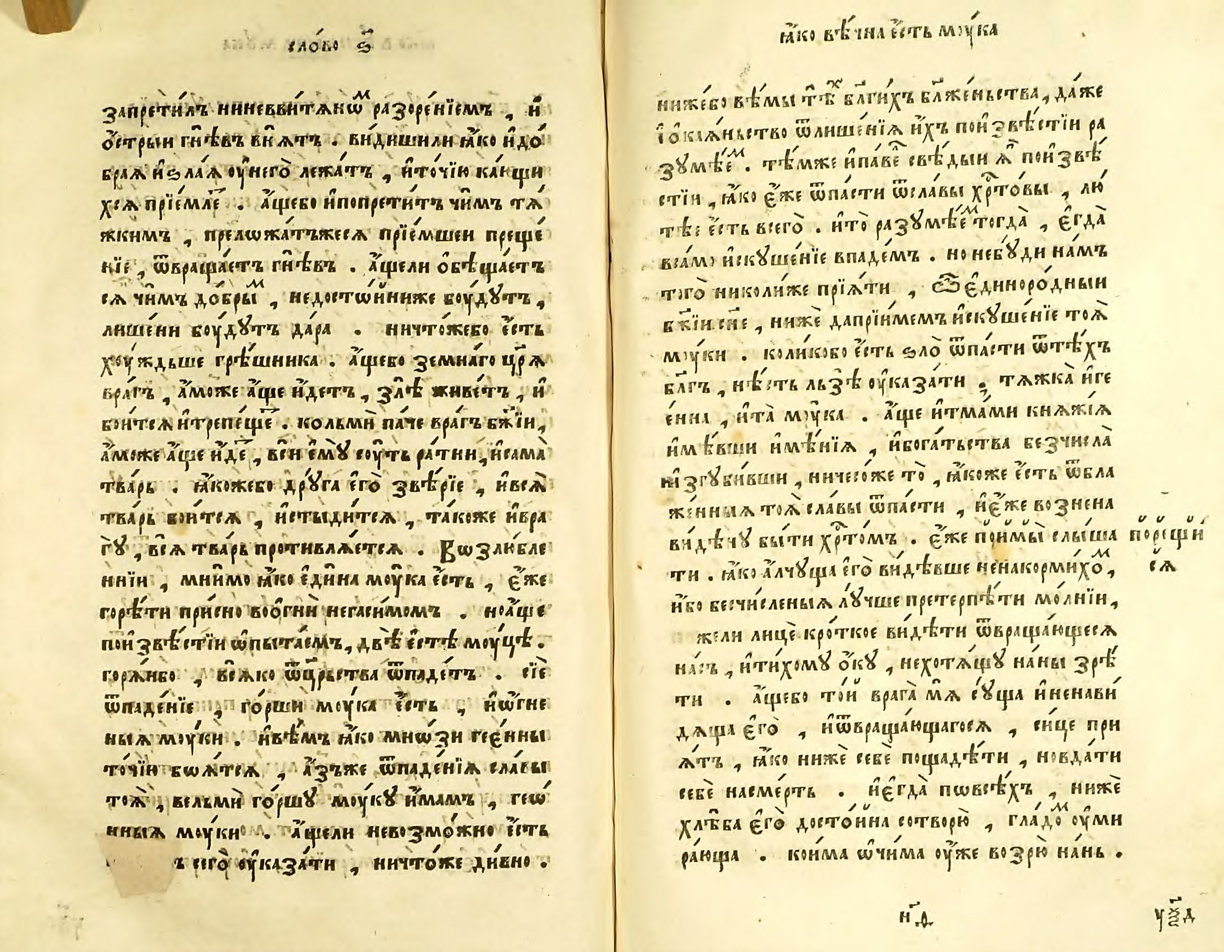 сло́во ѕ҃
запрети́лъ ниневвитѧнѡⷨ разоре́нїемъ , и҆
ѻ҆́стрыи гнѣ́въ внѧ́тъ . ви́дишили ꙗ҆́ко и҆до́
браѧ и҆ѕла́ѧ оу҆него̀ лежа́тъ , и҆то́чїю ка́ющи
хсѧ прїе́млеⷮ . а҆́щебо и҆попрети́тъ чи́мъ тѧ́
жкимъ , предложа́тъжесѧ прїе́мшеи преще́
нїе , ѿвраща́етъ гнѣ́въ . а҆́щели ѻ҆бѣща́етъ
сѧ чи́мъ до́брыⷨ , недосто́йниже боу́дутъ ,
лише́ни боу́дутъ да́ра . ничто́жебо е҆́сть
хоу́ждьше грѣ́шника . а҆́щебо земна́го цр҃ѧ̀
вра́гъ , а҆́може а҆́ще и҆́детъ , ѕлѣ̀ живе́тъ , и҆
бои́тсѧ и҆трепе́щеⷮ . ко́льми па́че вра́гъ бж҃їи ,
а҆́може а҆́ще и҆́деⷮ , всѝ е҆мꙋ̀ соу́ть ра́тни , и҆сама̀
тва́рь . ꙗ҆́кожебо дрꙋ́га е҆го̀ ѕвѣ́рїе , и҆всѧ̀
тва́рь бои́тсѧ , и҆стыди́тсѧ , та́коже и҆вра
гꙋ̀ , всѧ̀ тва́рь противлѧ́етсѧ . Возлю́бле
ннїи , мни́мо ꙗ҆́ко е҆ди́на моу́ка е҆́сть , є҆́же
горѣ́ти при́сно воо҆гни̑ негаси́момъ . ноа҆́ще
пои҆звѣ́стїи ѡ҆пыта́емъ , двѣ̀ е҆́стѣ моу́цѣ .
горѧ́ибо , всѧ́ко ѿцр҃ьства ѿпаде́тъ . сїѐ
ѿпаде́нїе , го́рши моу́ка е҆́сть , и҆ѡ҆́гне
ныѧ моу́ки . и҆вѣ́мъ ꙗ҆́ко мнѡ́зи гее́нны
то́чїю боѧ́тсѧ , а҆́зъже ѿпаде́нїѧ сла́вы
тоѧ̀ , вельмѝ го́ршꙋ моу́кꙋ и҆́мамъ , геѡ́
нныѧ моу́ки . а҆́щели невозмо́жно е҆́сть
ъ сего̀ оу҆каза́ти , ничто́же ди́вно .
ꙗ҆́ко вѣ́чна е҆́сть моу́ка
ниже́бо вѣ́мы тѣⷯ бл҃ги́хъ блаже́ньства , да́же
і҆ѻ҆каѧ́ньство ѿлише́нїѧ и҆́хъ пои҆звѣ́стїи ра
зꙋмѣ́еⷨ . тѣ́мже и҆па́веⷧ свѣ́дыи ѧ҆̀ пои҆звѣ́
стїи , ꙗ҆́ко є҆́же ѿпа́сти ѿсла́вы хрⷭ҇то́вы , лю́
тѣе е҆́сть всего̀ . и҆то̀ разꙋмѣ́еⷨ тогда̀ , є҆гда̀
вса́мо и҆скꙋше́нїе впаде́мъ . но небꙋ́ди на́мъ
того̀ николи́же прїѧ́ти , Ѽ є҆диноро́дныи
бж҃їи сн҃е , нижѐ дапрїи́мемъ и҆скꙋше́нїе тоѧ̀
моу́ки . коли́кобо е҆́сть ѕло̀ ѿпа́сти ѿтѣ́хъ
бл҃гъ , нѣ́сть льзѣ̀ оу҆каза́ти . тѧжка̀ и҆ге
е́нна , и҆та̀ моу́ка . а҆́ще и҆тма́ми кнѧ́жїѧ
и҆мѣ́вши и҆мѣ́нїѧ , и҆бога́тьства бечисла̀
и҆згꙋби́вши , ничесо́же то̀ , ꙗ҆́коже е҆́сть ѿбла
же́нныѧ тоѧ̀ сла́вы ѿпа́сти , и҆є҆́же вознена
ви́дѣнꙋ бы́ти хрⷭ҇то́мъ . є҆́же пои҆мы̀ слы́ша
ти . ꙗ҆́ко а҆́лчꙋща е҆го̀ ви́дѣвше ненакорми́хоⷨ ,
и҆́бо бесчи́сленыѧ лꙋ́чше претерпѣ́ти мо́лнїи ,
жели лицѐ кро́ткое ви́дѣти ѿвраща́ющеесѧ
на́съ , и҆ти́хомꙋ ѻ҆́кꙋ , нехотѧ́щꙋ на́ны зрѣ́
ти . а҆́щебо то́й врага̀ мѧ̀ сꙋ́ща и҆ненави́
дѧща є҆го̀ , и҆ѿвраща́ющагосѧ , си́це при
ѧ́тъ , ꙗ҆́ко нижѐ себѐ пощадѣ́ти , новда́ти
себѐ насме́рть . и҆є҆гда̀ пѡвсѣ́хъ , нижѐ
хлѣ́ба є҆го̀ досто́йна сотворю̀ , гла́доⷨ оу҆ми
ра́юща . ко́има ѡ҆чи́ма оу҆́же возрю̀ на́нь .